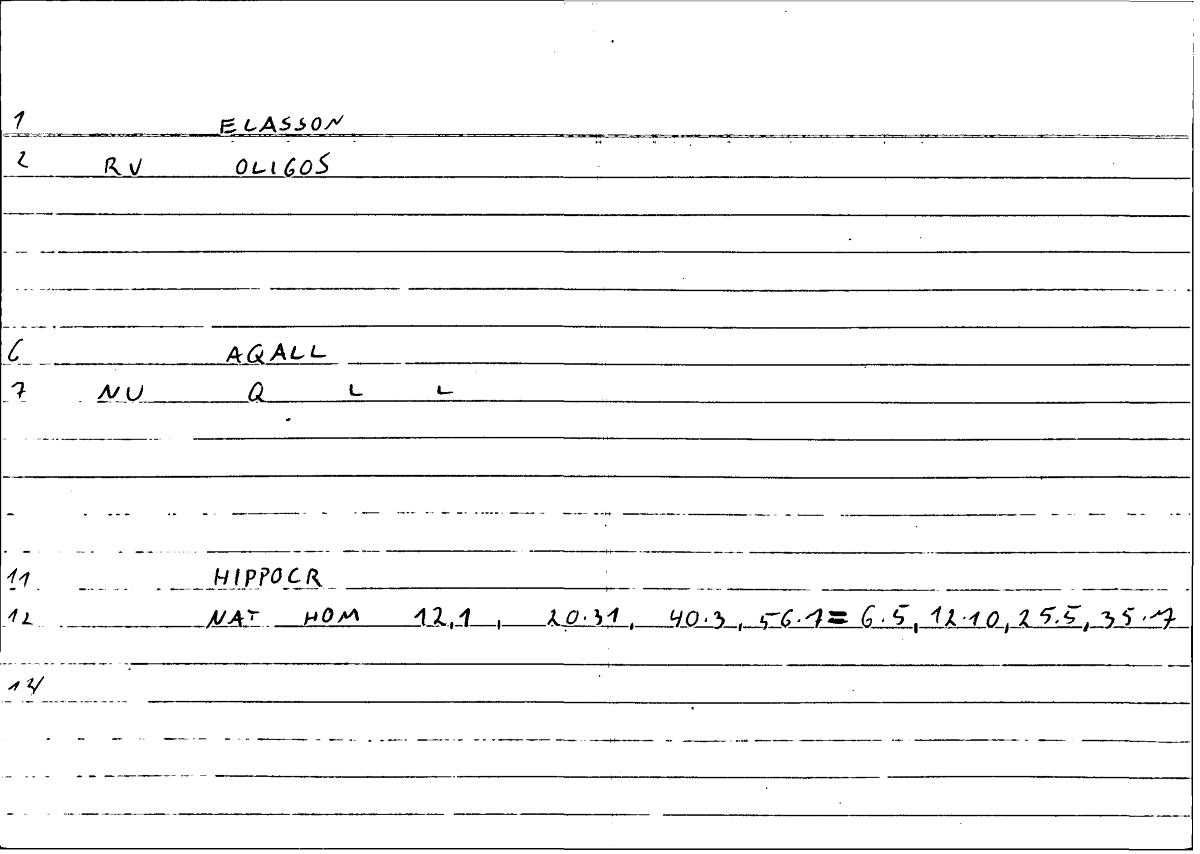 1 ELASSON
2 RV OLIGOS
6 AQALL
7 NU Q L L
11 HIPPOCR
12 NAT HOM 12,1 , 20.31, 40.3, 56.1= 6.5, 12.10, 25.5, 35.7